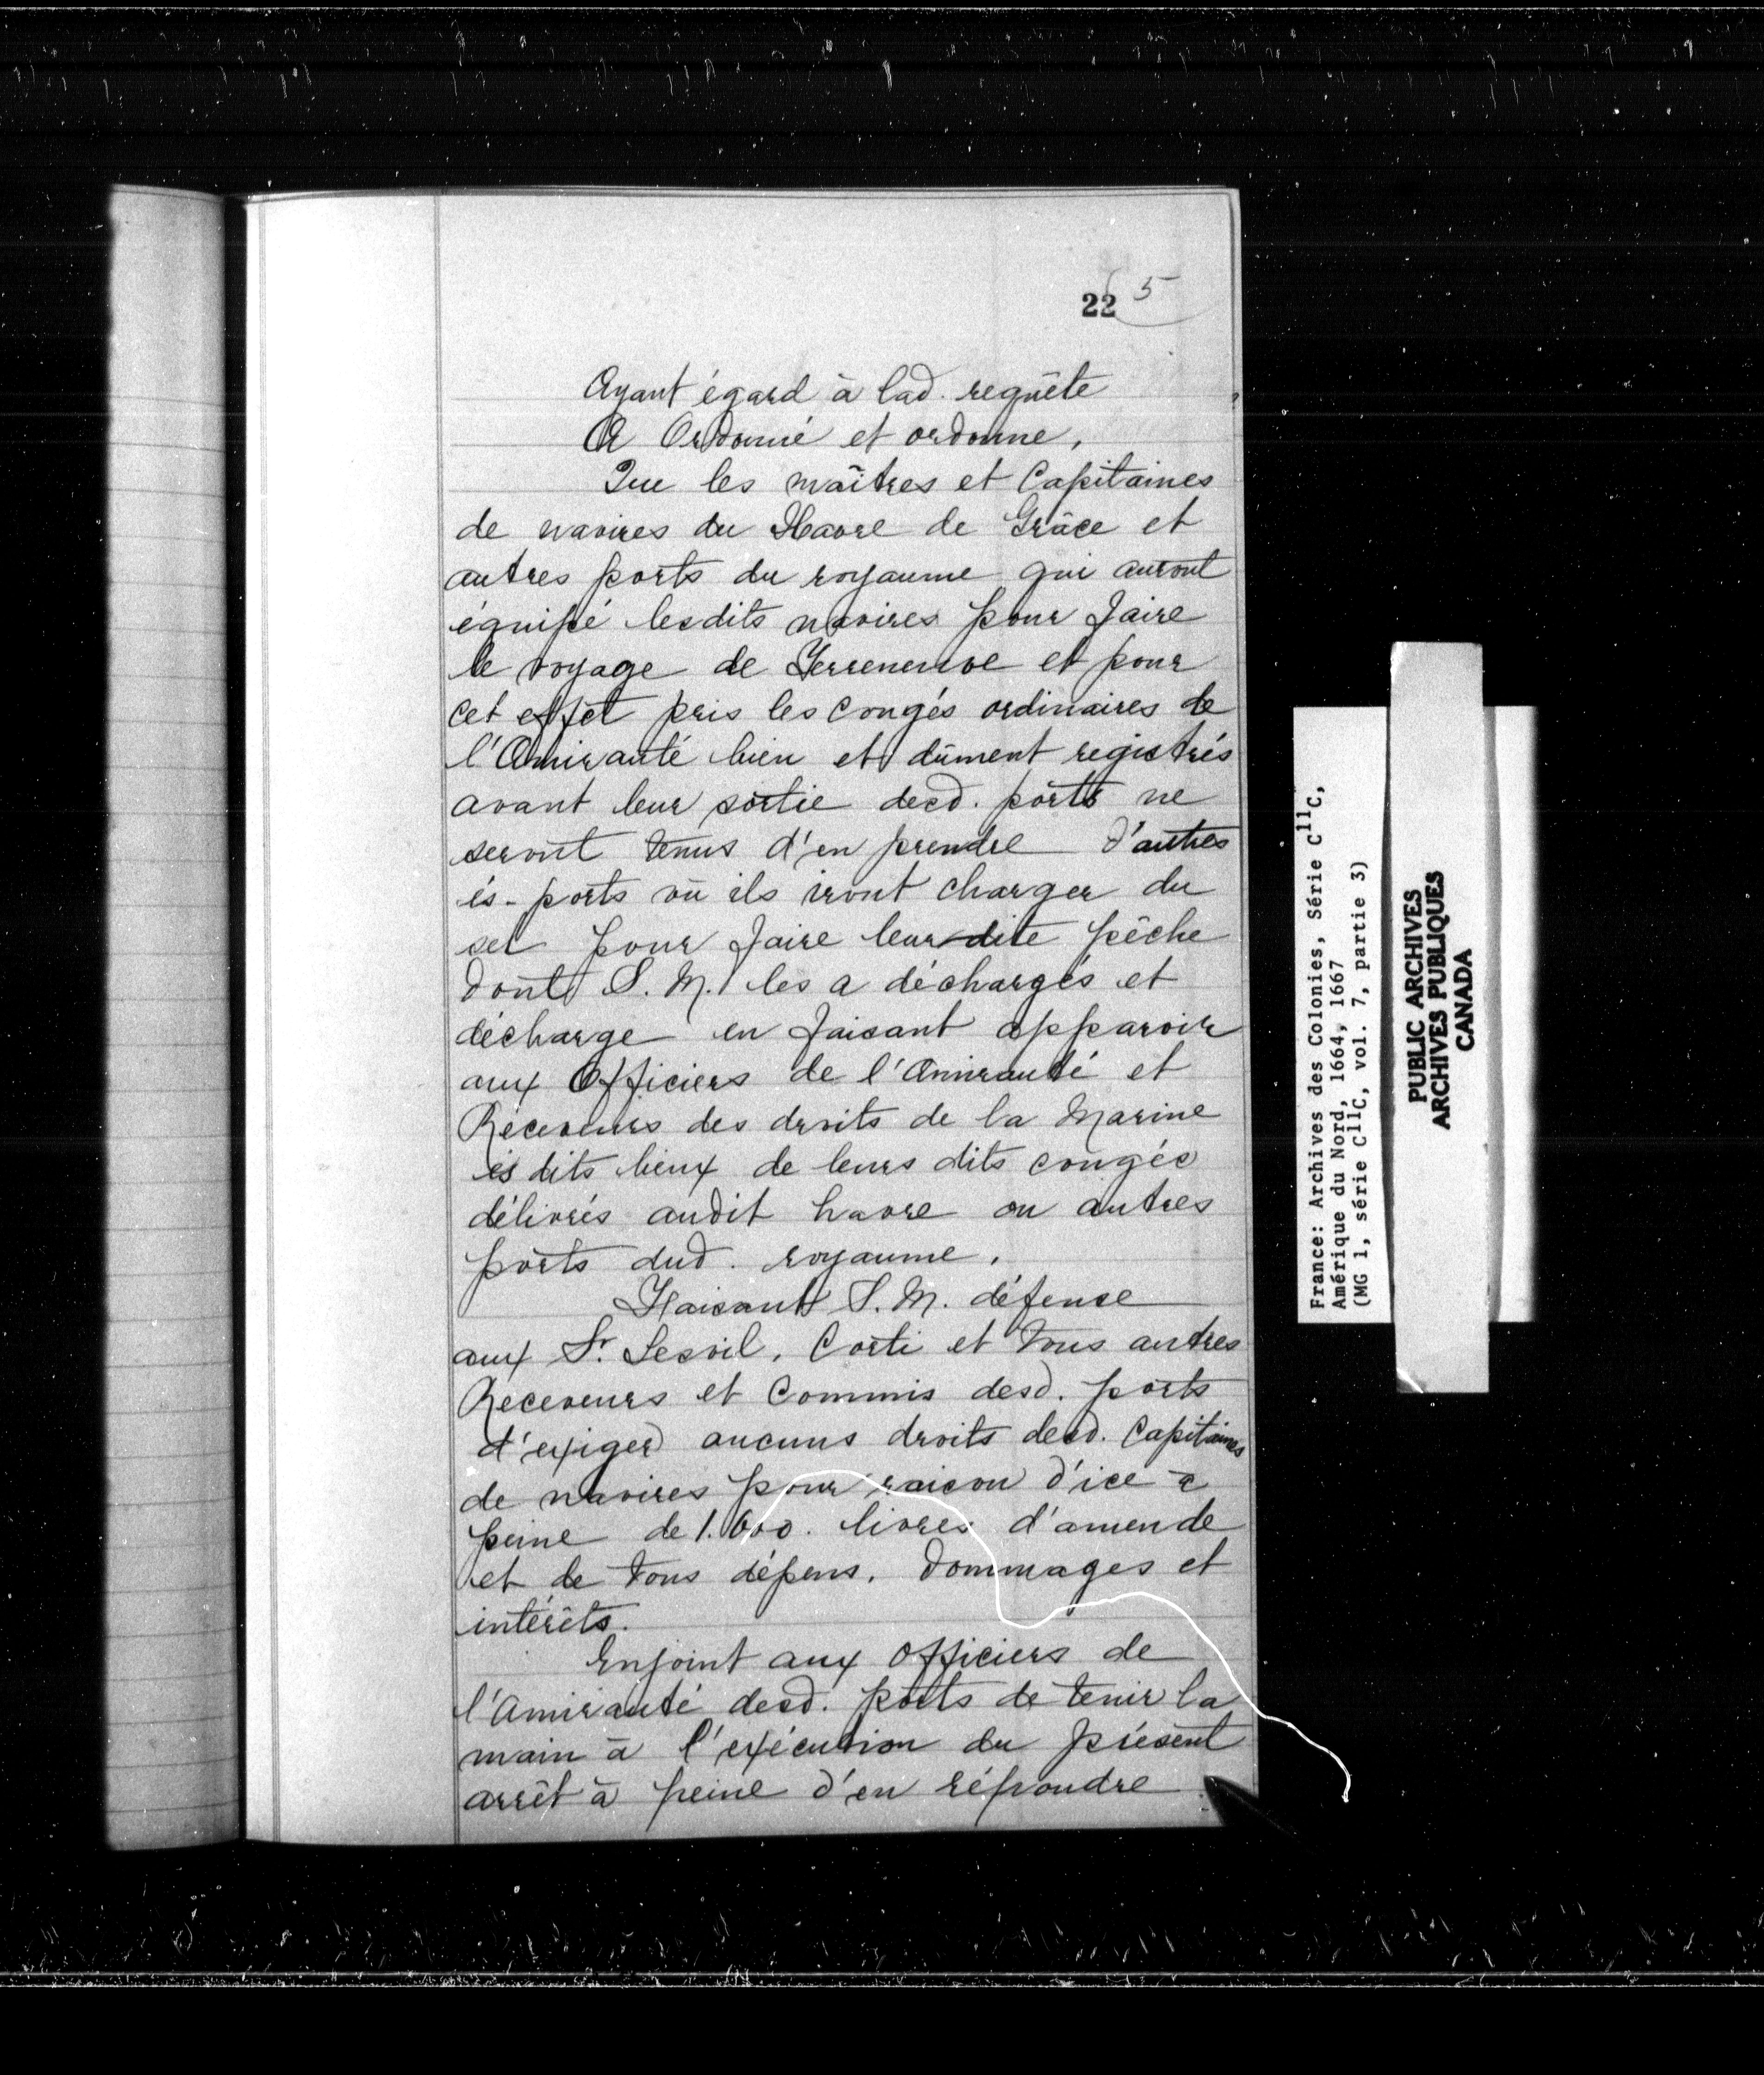 22 5
Ayant égard à lad. requête
A Ordonné et ordonne,
Que les maîtres et Capitaines
de navires du Havre de Grâce et
autres ports du royaume qui auront
équipé lesdits navires pour faire
le voyage de Terreneuve et pour
cet effet pris les congés ordinaires de
l'Amirauté bien et dûment registrés
avant leur sortie desd. ports ne
seront tenus d'en prendre d'autres
ès-ports où ils iront charger du
sel pour faire leur dite pêche
dont S. M. les a déchargés et
décharge en faisant apparoir
aux Officiers de l'Amirauté et
Receveurs des droits de la Marine
ès dits lieux de leurs dits congés
délivrés audit havre ou autres
ports dud. royaume.
Faisant S. M. défense
aux Sr. Lesvil, Corti et tous autres
Receveurs et Commis desd. ports
d'exiger aucuns droits desd. Capitaines
de navires pour raison d'ice à
peine de 1.000. livres d'amende
et de tous dépens, dommages et
intérêts.
Enjoint aux Officiers de
l'Amirauté desd. ports de tenir la
main à l'exécution du présent
arrêt à peine d'en répondre
France: Archives des Colonies, Série C11C,
Amérique du Nord, 1664, 1667
(MG 1, série C11C, vol. 7, partie 3)
PUBLIC ARCHIVES
ARCHIVES PUBLIQUES
CANADA